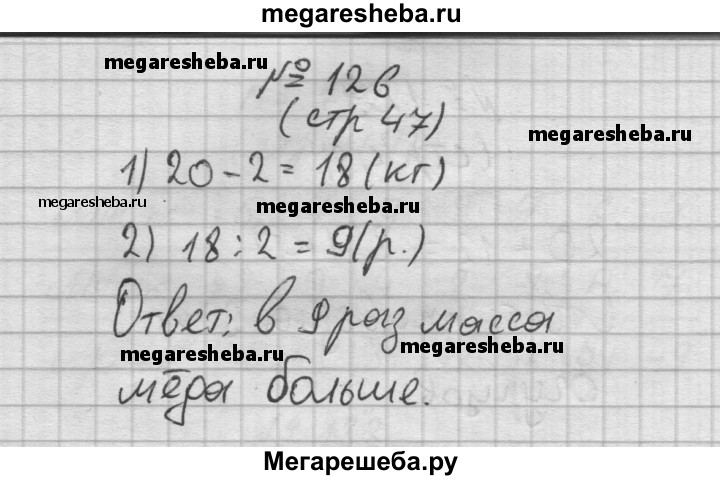 megaresheba.ru
megaresheba.ru
№ 12в
(стр 47)
megaresheba.ru
1) 20 - 2 = 18 (кг)
megaresheba.ru
megaresheba.ru
2) 18 : 2 = 9 (р.)
Ответ: в 9 раз масса
megaresheba.ru
megaresheba.ru
мёда больше.
Мегарешеба.ру